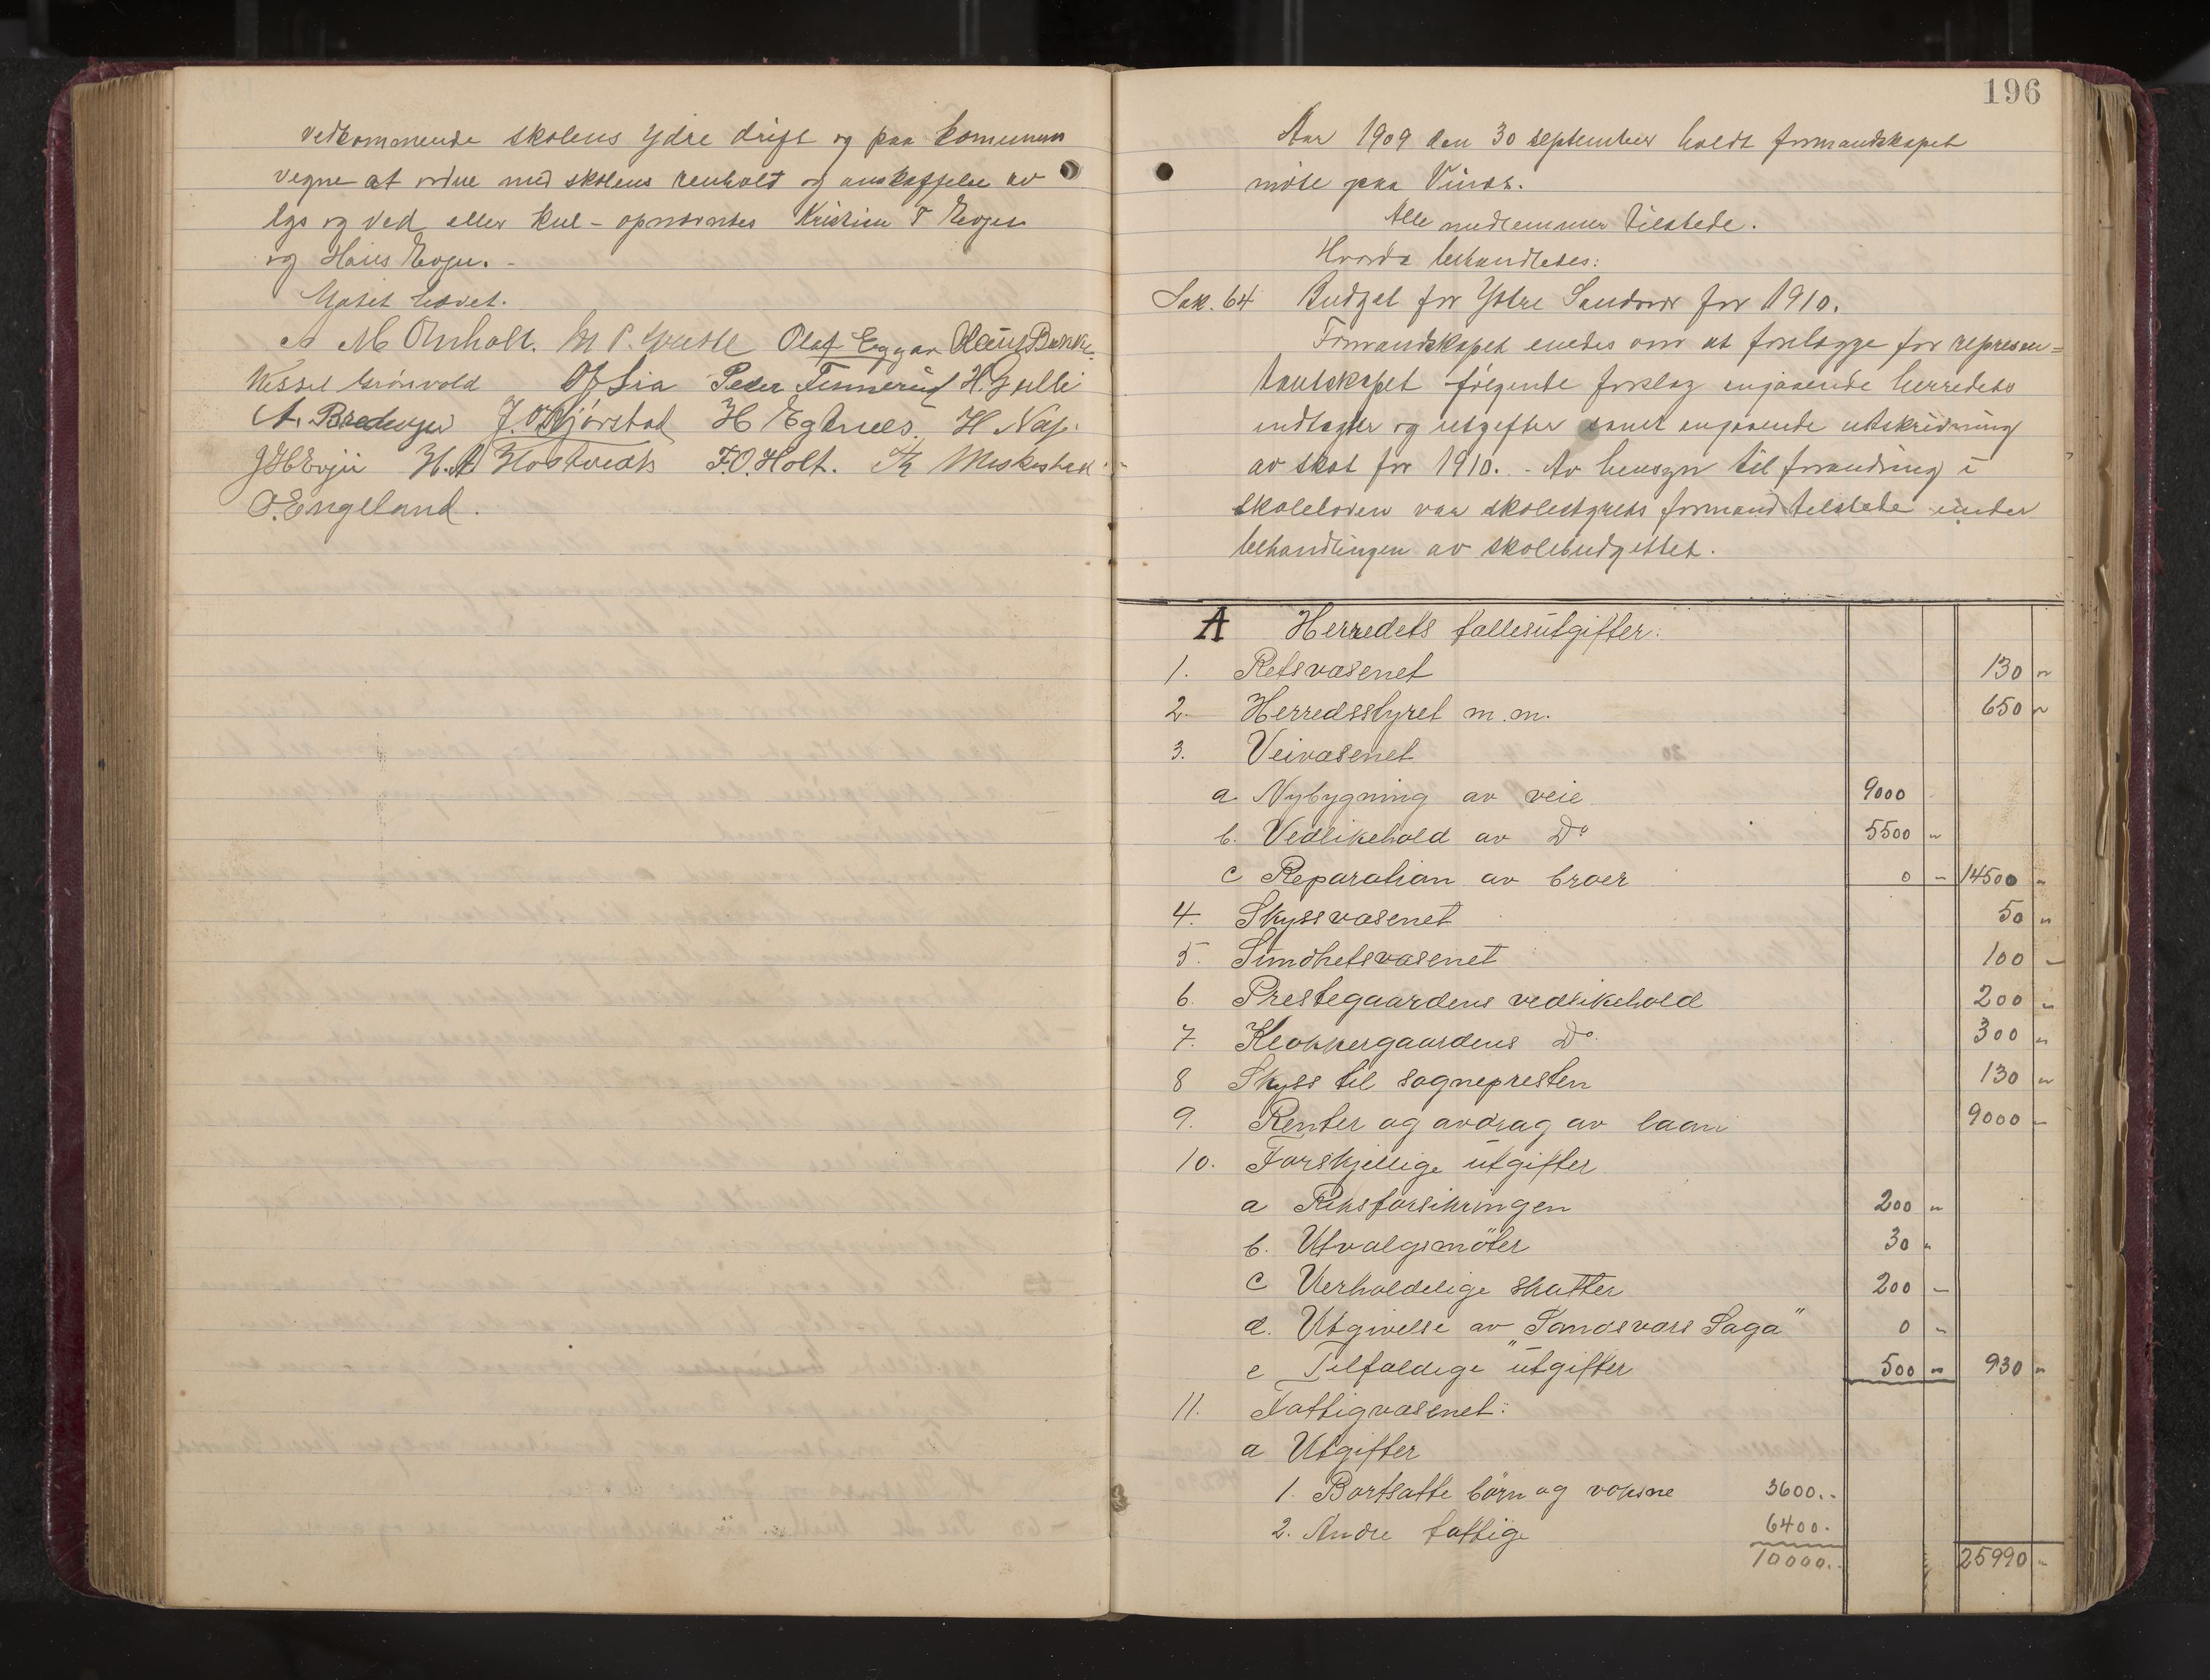 vedkommende skolens ydre drift og paa komunens
vegne at ordne med skolens renhold og anskaffelse av
lys og ved eller kul - opnævntes Kristian T Evju
og Hans Evju. -
Møtet hævet.
A M Omholt. Olaf Eggar Klaus Bakke
Wessel Grönvold O J Lia Peder Temmerud H. Gulli
A. Bredeveien J. O. Bjørstad H Egtnees. H. Nap.
J H Evju H. A Hostvedt F. O. Holt. Th Meskestad
O. Engeland.
196
Aar 1909 den 30 september holdt formandskapet
møte paa Vinor.
Alle medlemmer tilstede.
Hvorda behandledes:
Sak. 64 Budget for Ytre Sandsvær for 1910.
Formandskapet enedes om at forelægge for represen=
tantskapet følgende forslag angaaende herredets
indtægter og utgifter samt angaaende utskrivning
av skat for 1910. - Av hensyn til forandring i
skoleloven var skolestyrets formand tilstede under
behandlingen av skolebudgettet.
A Herredets fællesutgifter:
1. Retsvæsenet 130 "
2. Herredsstyret m. m. 650 "
3. Veivæsenet
a Nybygning av veie 9000
b. Vedlikehold av Do 5500 "
c Reparation av broer 0 " 14500 "
4. Skyssvæsenet 50 "
5. Sundhetsvæsenet 100 "
6. Prestegaardens vedlikehold 200 "
7. Klokkergaardens Do. 300 "
8 Skyss til sognepresten 130 "
9. Renter og avdrag av laan 9000 "
10. Forskjellige utgifter
a Riksforsikringen 200 "
b. Utvalgsmöter 30 "
c Uerholdelige skatter 200 "
d. Utgivelse av „Sandsværs Saga" 0 "
e Tilfældige utgifter 500 " 930 "
11. Fattigvæsenet:
a Utgifter
1. Bortsatte börn og voksne 3600. -
2. Andre fattige 6400. -
10000. - 25990 "